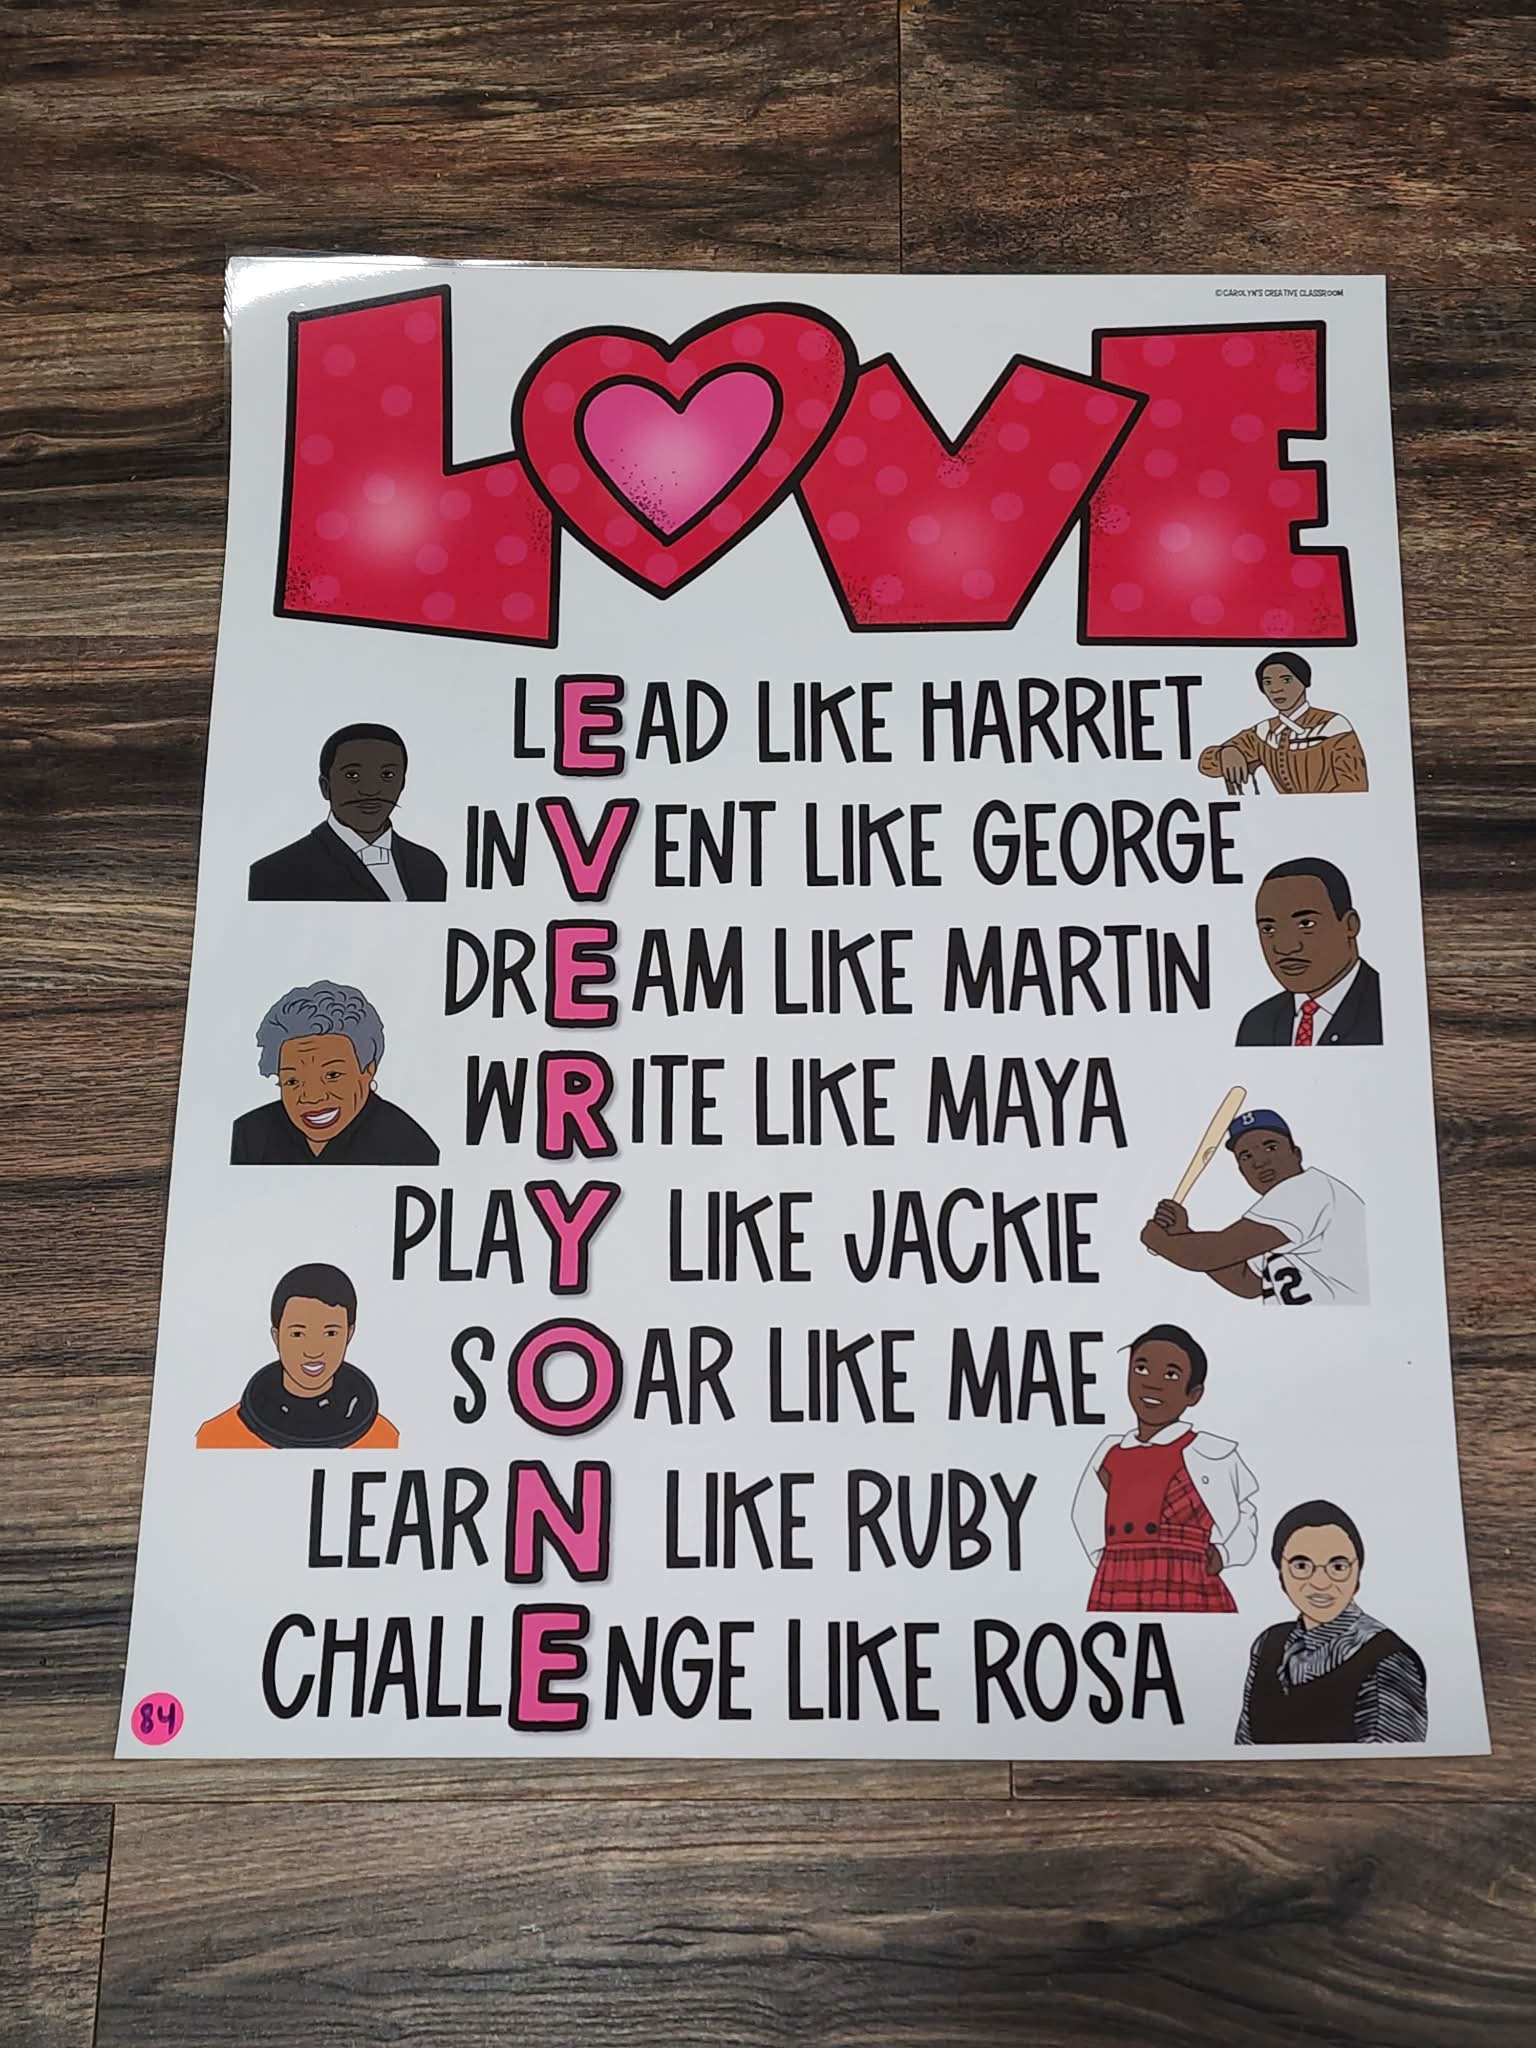 ©CAROLYN'S CREATIVE CLASSROOM
LOVE
LEAD LIKE HARRIET
INVENT LIKE GEORGE
DREAM LIKE MARTIN
WRITE LIKE MAYA
B
PLAY LIKE JACKIE
2
SOAR LIKE MAE
LEARN LIKE RUBY
CHALLENGE LIKE ROSA
84